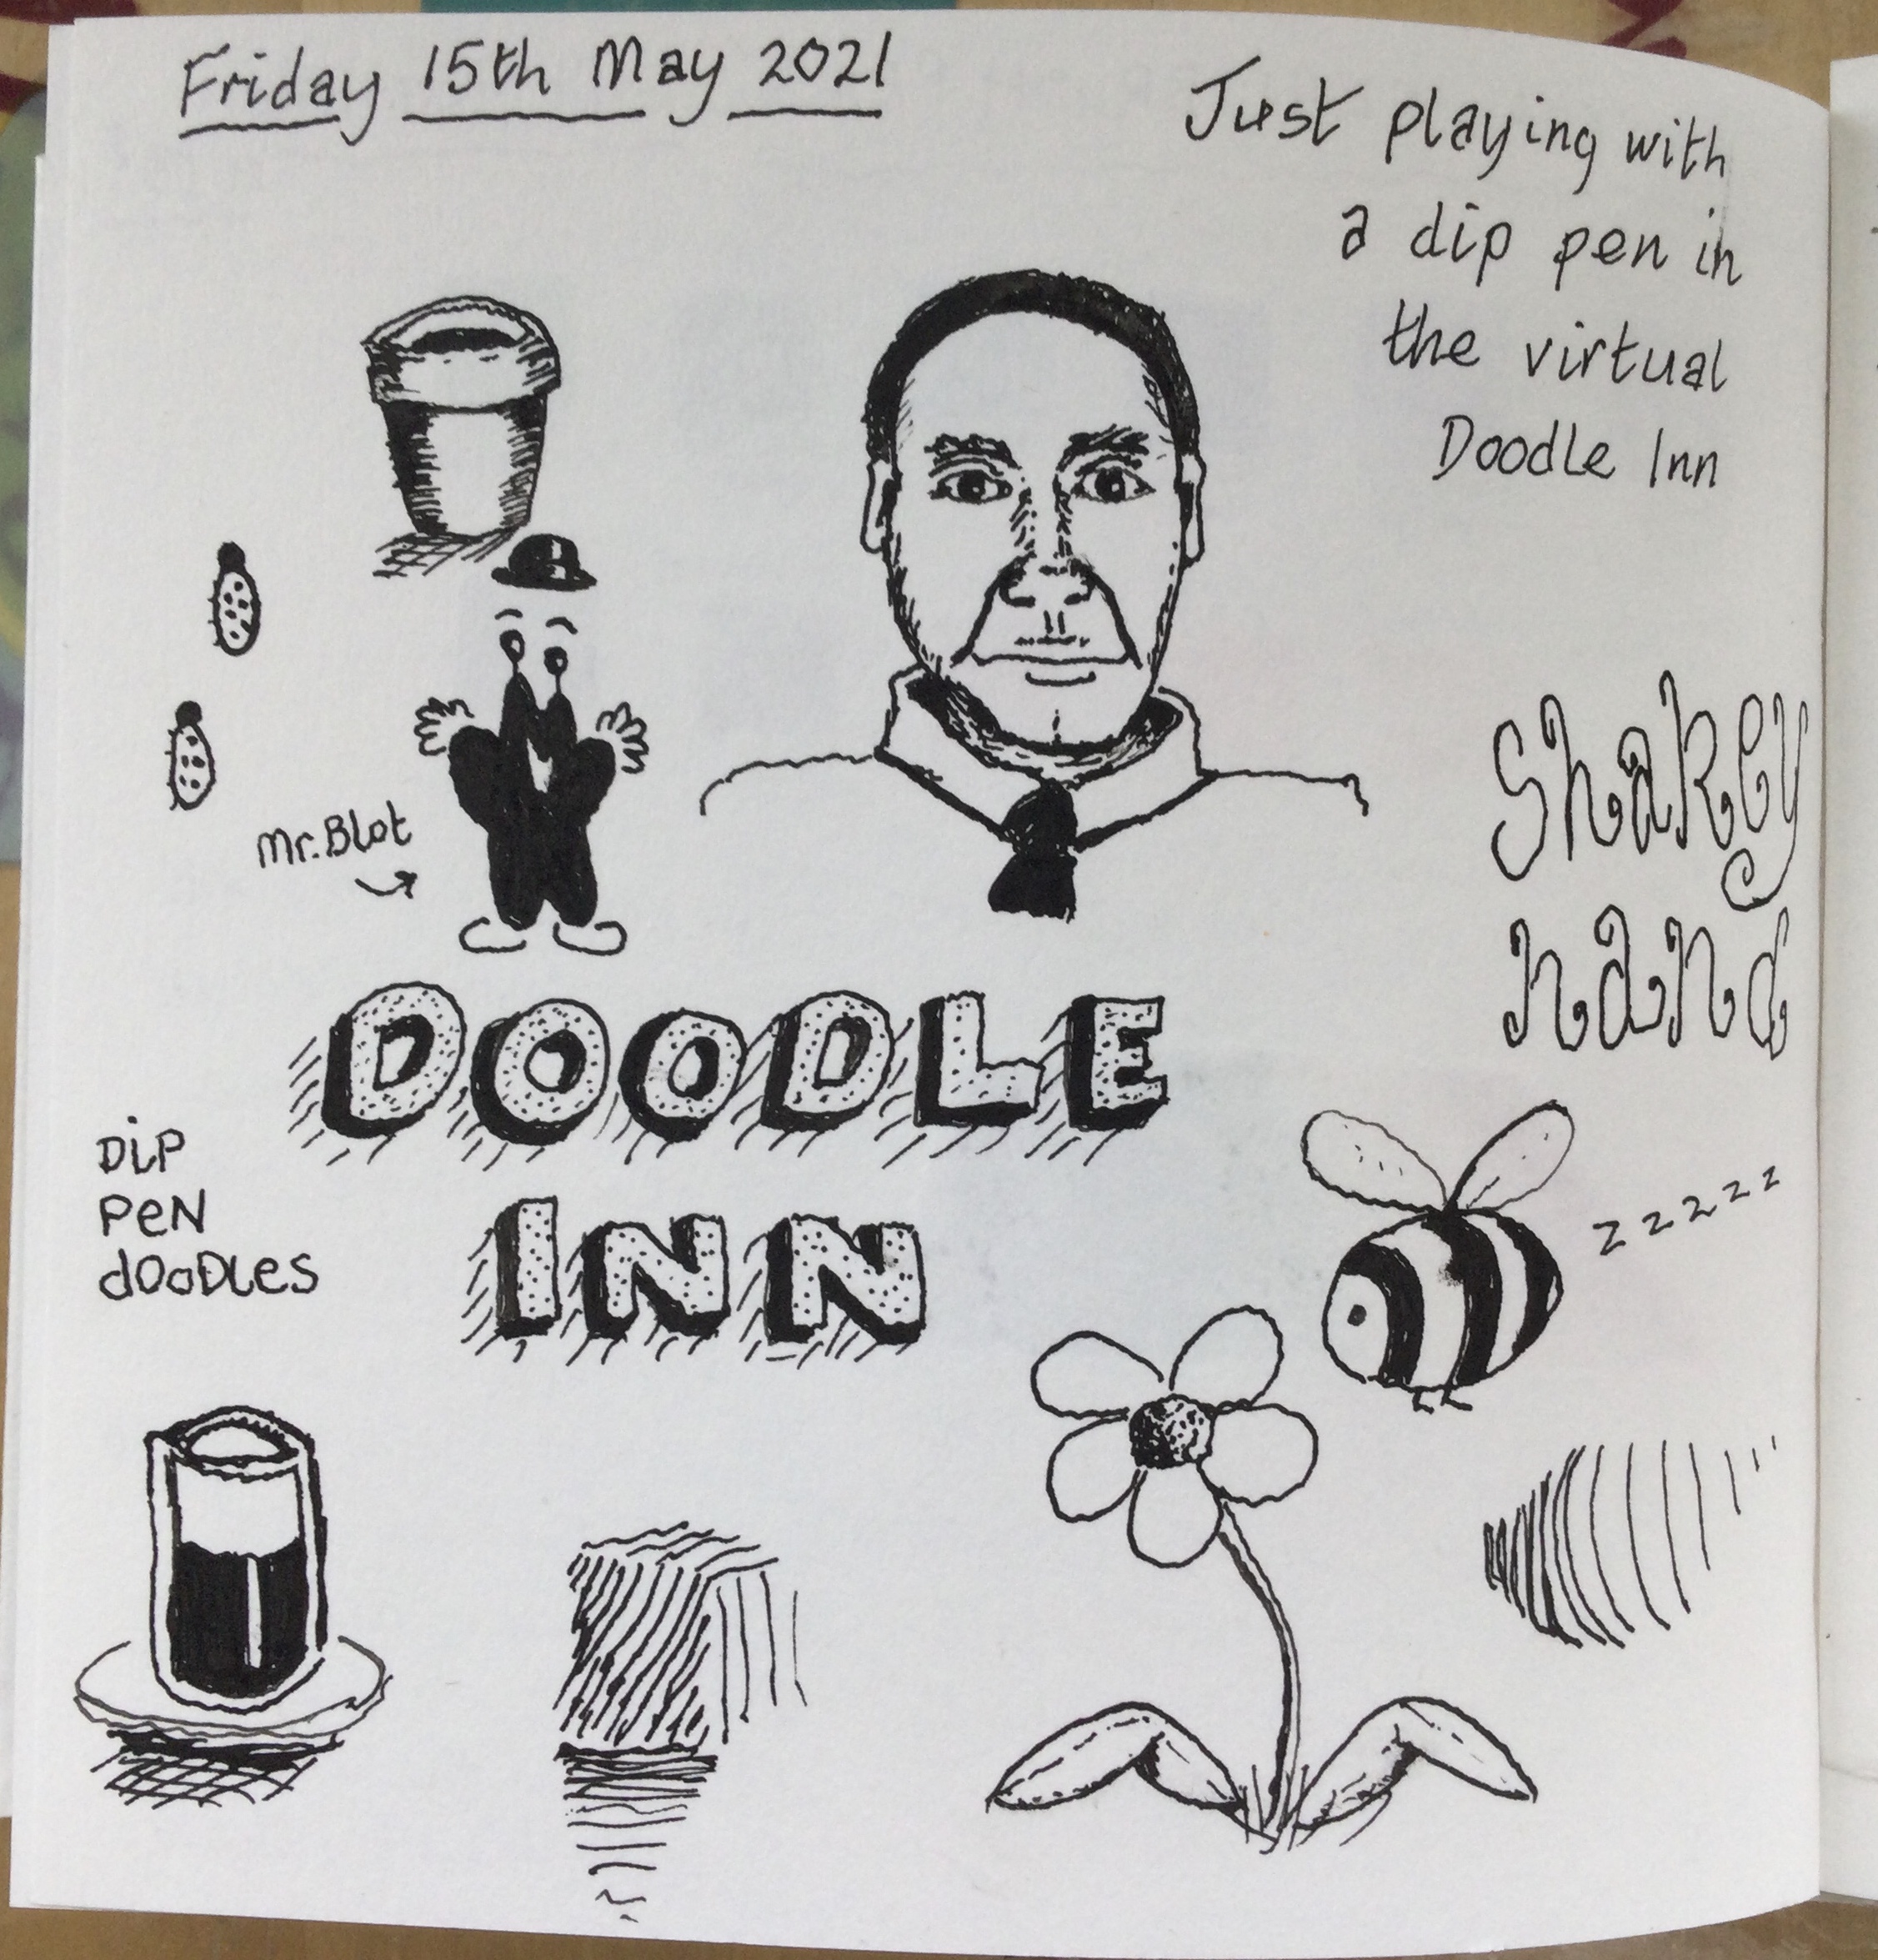 Friday 15th May 2021
Just playing with
a dip pen in
the virtual
Doodle Inn
Mr. Blot
Shakey
hand
DOODLE
INN
DiP
PeN
dOoDLes
zzzzzz